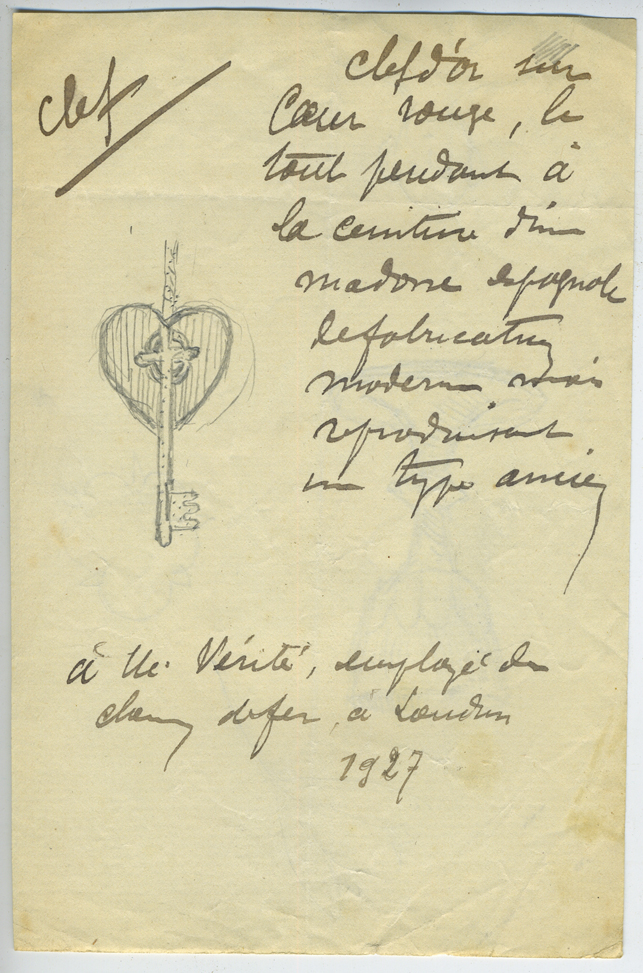 clef
clef d'or sur
Cœur rouge, le
tout pendant à
la ceinture d'une
madone espagnole
de fabrication
moderne mais
reproduisant
un type ancien
à Mr Vérité, employé du
chemin de fer, à Loudun
1927